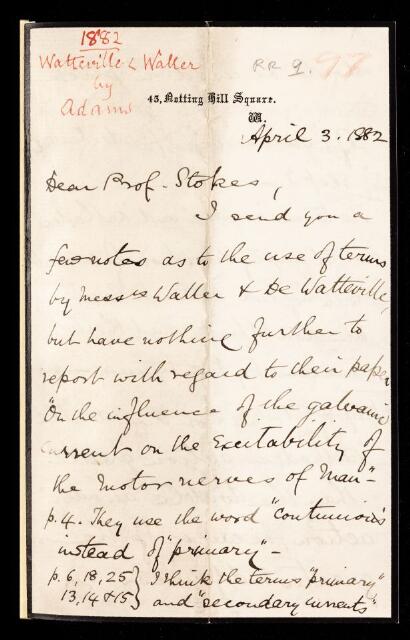 1882
Watteville & Waller
by
Adams
RR 9. 97
43, Notting Hill Square.
W.
April 3. 1882
Dear Prof. Stokes,
I send you a
few notes as to the use of terms
by Messrs Waller & De Watteville,
but have nothing further to
report with regard to their paper
"On the influence of the galvanic
current on the Excitability of
the Motor nerves of Man" -
p. 4. They use the word "continuous"
instead of "primary" -
p. 6, 18, 25 } I think the terms "primary"
13, 14 & 15 } and "secondary currents"